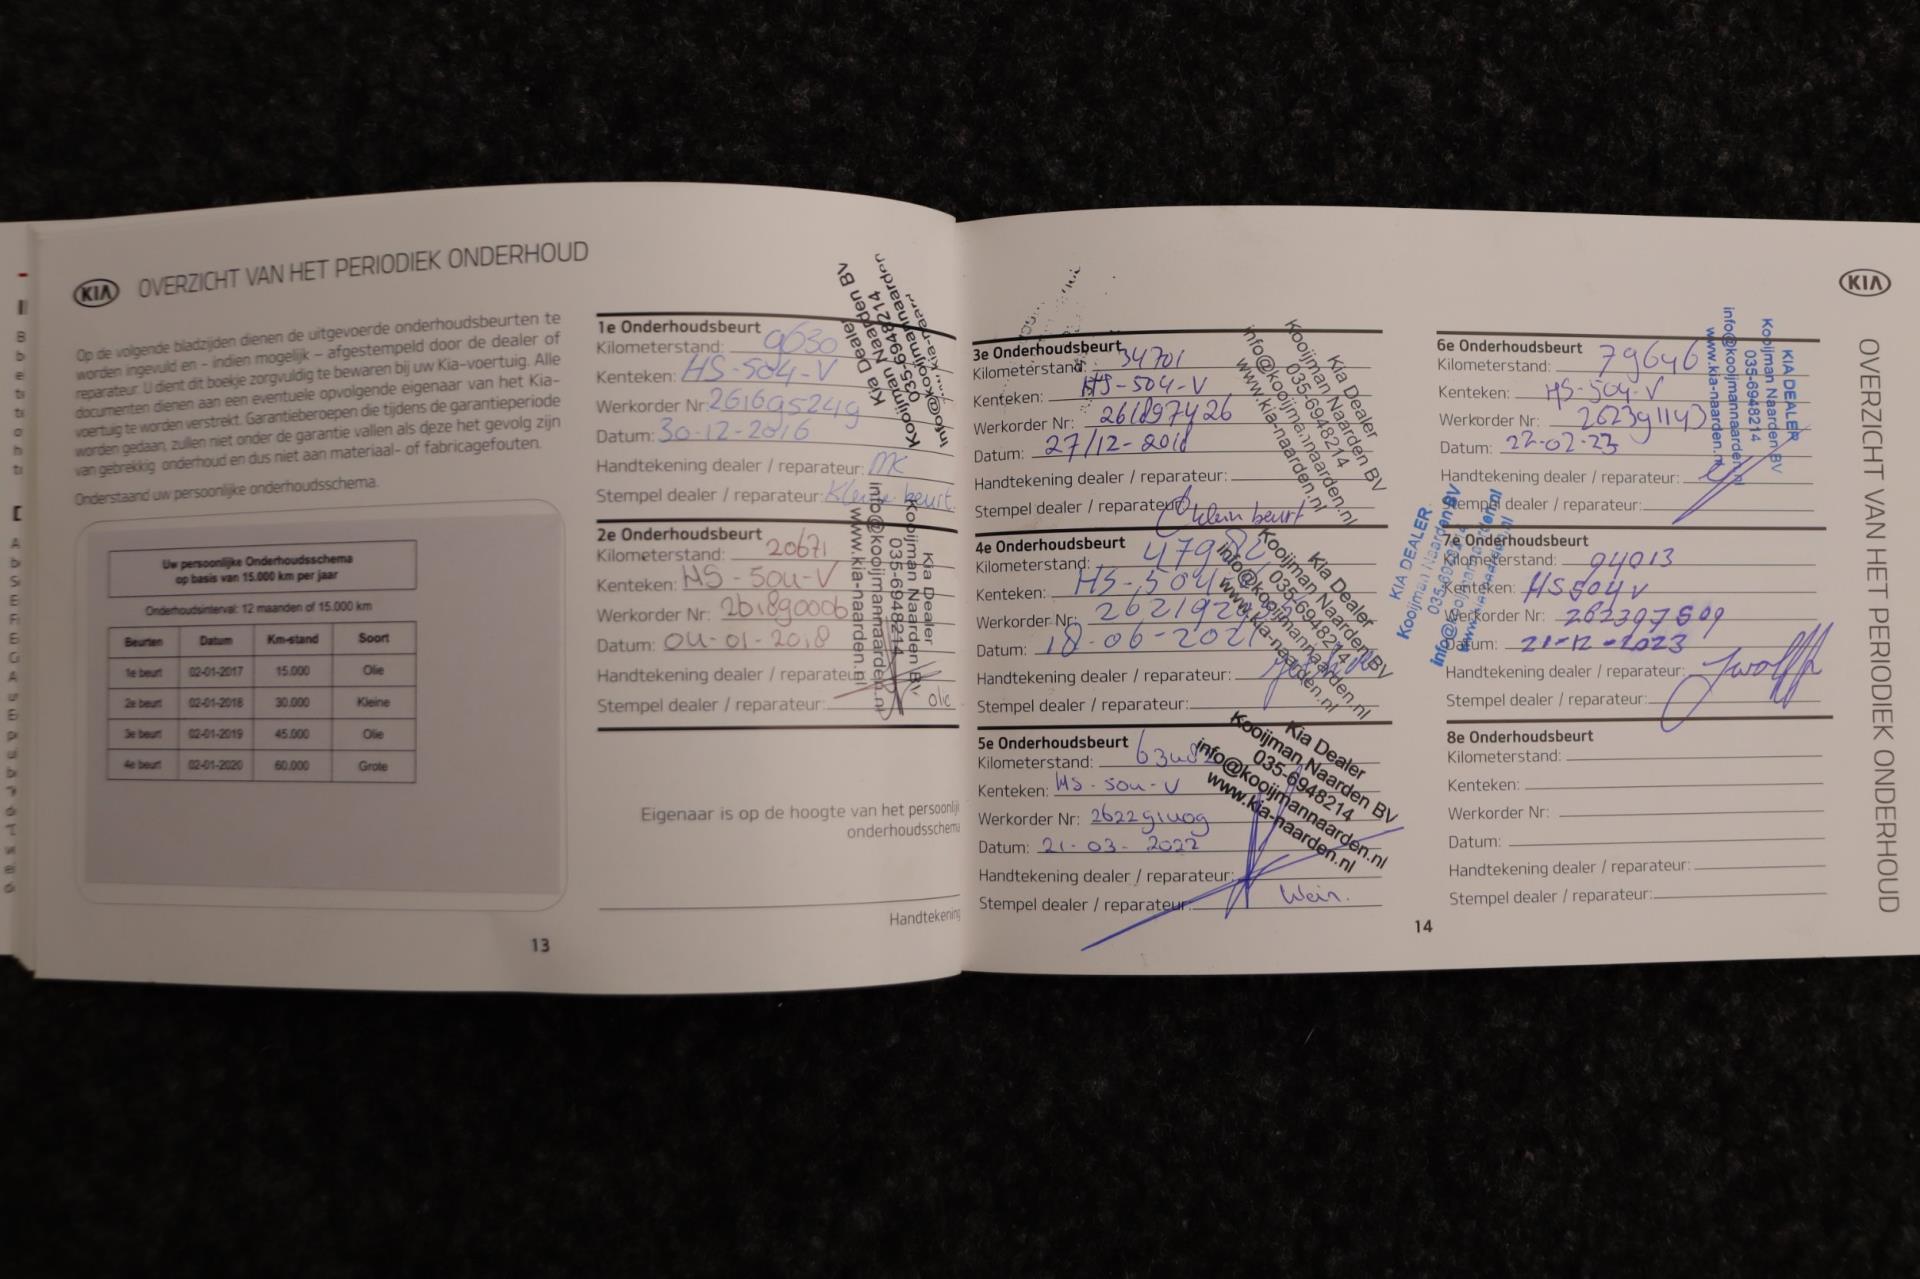 KIA OVERZICHT VAN HET PERIODIEK ONDERHOUD
Op de volgende bladzijden dienen de uitgevoerde onderhoudsbeurten te
worden ingevuld en – indien mogelijk – afgestempeld door de dealer of
reparateur. U dient dit boekje zorgvuldig te bewaren bij uw Kia-voertuig. Alle
documenten dienen aan een eventuele opvolgende eigenaar van het Kia-
voertuig te worden verstrekt. Garantieberoepen die tijdens de garantieperiode
worden gedaan, zullen niet onder de garantie vallen als deze het gevolg zijn
van gebrekkig onderhoud en dus niet aan materiaal- of fabricagefouten.
Onderstaand uw persoonlijke onderhoudsschema.
Uw persoonlijke Onderhoudsschema
op basis van 15.000 km per jaar
Onderhoudsinterval: 12 maanden of 15.000 km
Beurten Datum Km-stand Soort
1e beurt 02-01-2017 15.000 Olie
2e beurt 02-01-2018 30.000 Kleine
3e beurt 02-01-2019 45.000 Olie
4e beurt 02-01-2020 60.000 Grote
13
1e Onderhoudsbeurt
Kilometerstand: 9630
Kenteken: HS-504-V
Werkorder Nr: 261695249
Datum: 30-12-2016
Handtekening dealer / reparateur: MK
Stempel dealer / reparateur: Kleine beurt
Kia Dealer
Kooijman Naarden BV
035-6948214
info@kooijmannaarden
2e Onderhoudsbeurt
Kilometerstand: 20671
Kenteken: HS-504-V
Werkorder Nr: 261890006
Datum: 04-01-2018
Handtekening dealer / reparateur:
Stempel dealer / reparateur: olie
Kia Dealer
Kooijman Naarden BV
035-6948214
info@kooijmannaarden.nl
www.kia-naarden.nl
Eigenaar is op de hoogte van het persoonlij
onderhoudsschema
Handtekening
3e Onderhoudsbeurt
Kilometerstand: 34701
Kenteken: HS-504-V
Werkorder Nr: 261897426
Datum: 27/12-2018
Handtekening dealer / reparateur:
Stempel dealer / reparateur: klein beurt
Kia Dealer
Kooijman Naarden BV
035-6948214
info@kooijmannaarden.nl
www.kia-naarden.nl
4e Onderhoudsbeurt
Kilometerstand:
Kenteken: HS-504
Werkorder Nr:
Datum: 18-06-2021
Handtekening dealer / reparateur:
Stempel dealer / reparateur:
Kia Dealer
Kooijman Naarden BV
035-6948214
info@kooijmannaarden.nl
www.kia-naarden.nl
5e Onderhoudsbeurt
Kilometerstand:
Kenteken: HS-504-V
Werkorder Nr: 262291409
Datum: 21-03-2022
Handtekening dealer / reparateur:
Stempel dealer / reparateur:
Kia Dealer
Kooijman Naarden BV
035-6948214
info@kooijmannaarden.nl
www.kia-naarden.nl
14
KIA
OVERZICHT VAN HET PERIODIEK ONDERHOUD
6e Onderhoudsbeurt
Kilometerstand: 79646
Kenteken: HS-504-V
Werkorder Nr: 262391143
Datum: 22-02-23
Handtekening dealer / reparateur:
Stempel dealer / reparateur:
KIA DEALER
Kooijman Naarden BV
035-6948214
info@kooijmannaarden
www.kia-naarden.nl
7e Onderhoudsbeurt
Kilometerstand: 94013
Kenteken: HS504V
Werkorder Nr: 262397509
Datum: 21-12-2023
Handtekening dealer / reparateur: Jwolff
Stempel dealer / reparateur:
KIA DEALER
Kooijman Naarden BV
8e Onderhoudsbeurt
Kilometerstand:
Kenteken:
Werkorder Nr:
Datum:
Handtekening dealer / reparateur:
Stempel dealer / reparateur: